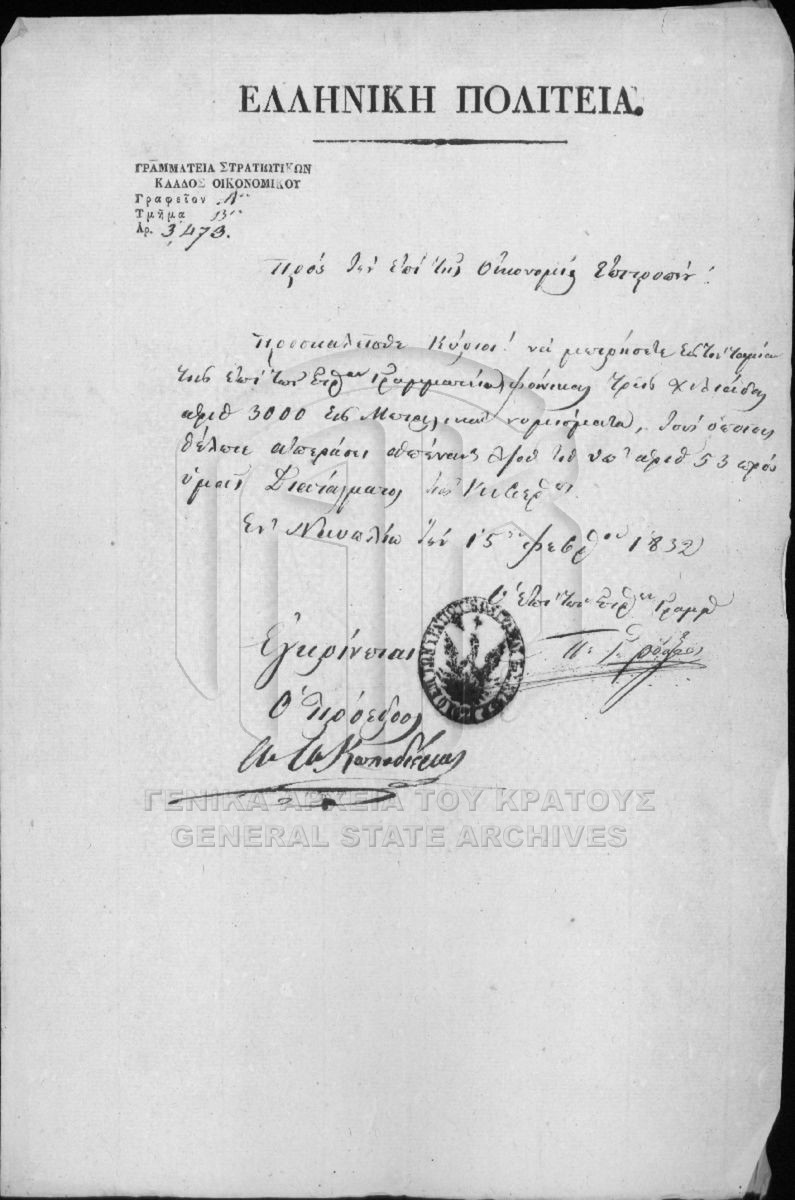 ΕΛΛΗΝΙΚΗ ΠΟΛΙΤΕΙΑ.
ΓΡΑΜΜΑΤΕΙΑ ΣΤΡΑΤΙΩΤΙΚΩΝ
ΚΛΑΔΟΣ ΟΙΚΟΝΟΜΙΚΟΥ
Γραφεῖον Αον
Τμῆμα Βον
Ἀρ. 3,473.
Πρός τήν ἐπί τῆς Οἰκονομίας Ἐπιτροπήν!
Προσκαλεῖσθε Κύριοι! νά μετρήσετε εἰς τόν ταμίαν
τῆς ἐπί τῶν Στρθων Γραμματείας φοίνικας τρεῖς χιλιάδας
ἀριθ 3000 εἰς Μεταλλικά νομίσματα, τούς ὁποίους
θέλετε ἀπεράσει ἀπέναντι τοῦ ὑπ' ἀριθ 53 πρός
ὑμᾶς Διατάγματος τῆς Κυβερσ
Ἐν Ναυπλίῳ τήν 15 Φεβρου 1832
Ὁ ἐπί τῶν Στρθων Γραμμ
Ἐγκρίνεται
Ὁ Πρόεδρος
Α. Α. Καποδίστριας
ΓΕΝΙΚΑ ΑΡΧΕΙΑ ΤΟΥ ΚΡΑΤΟΥΣ
GENERAL STATE ARCHIVES